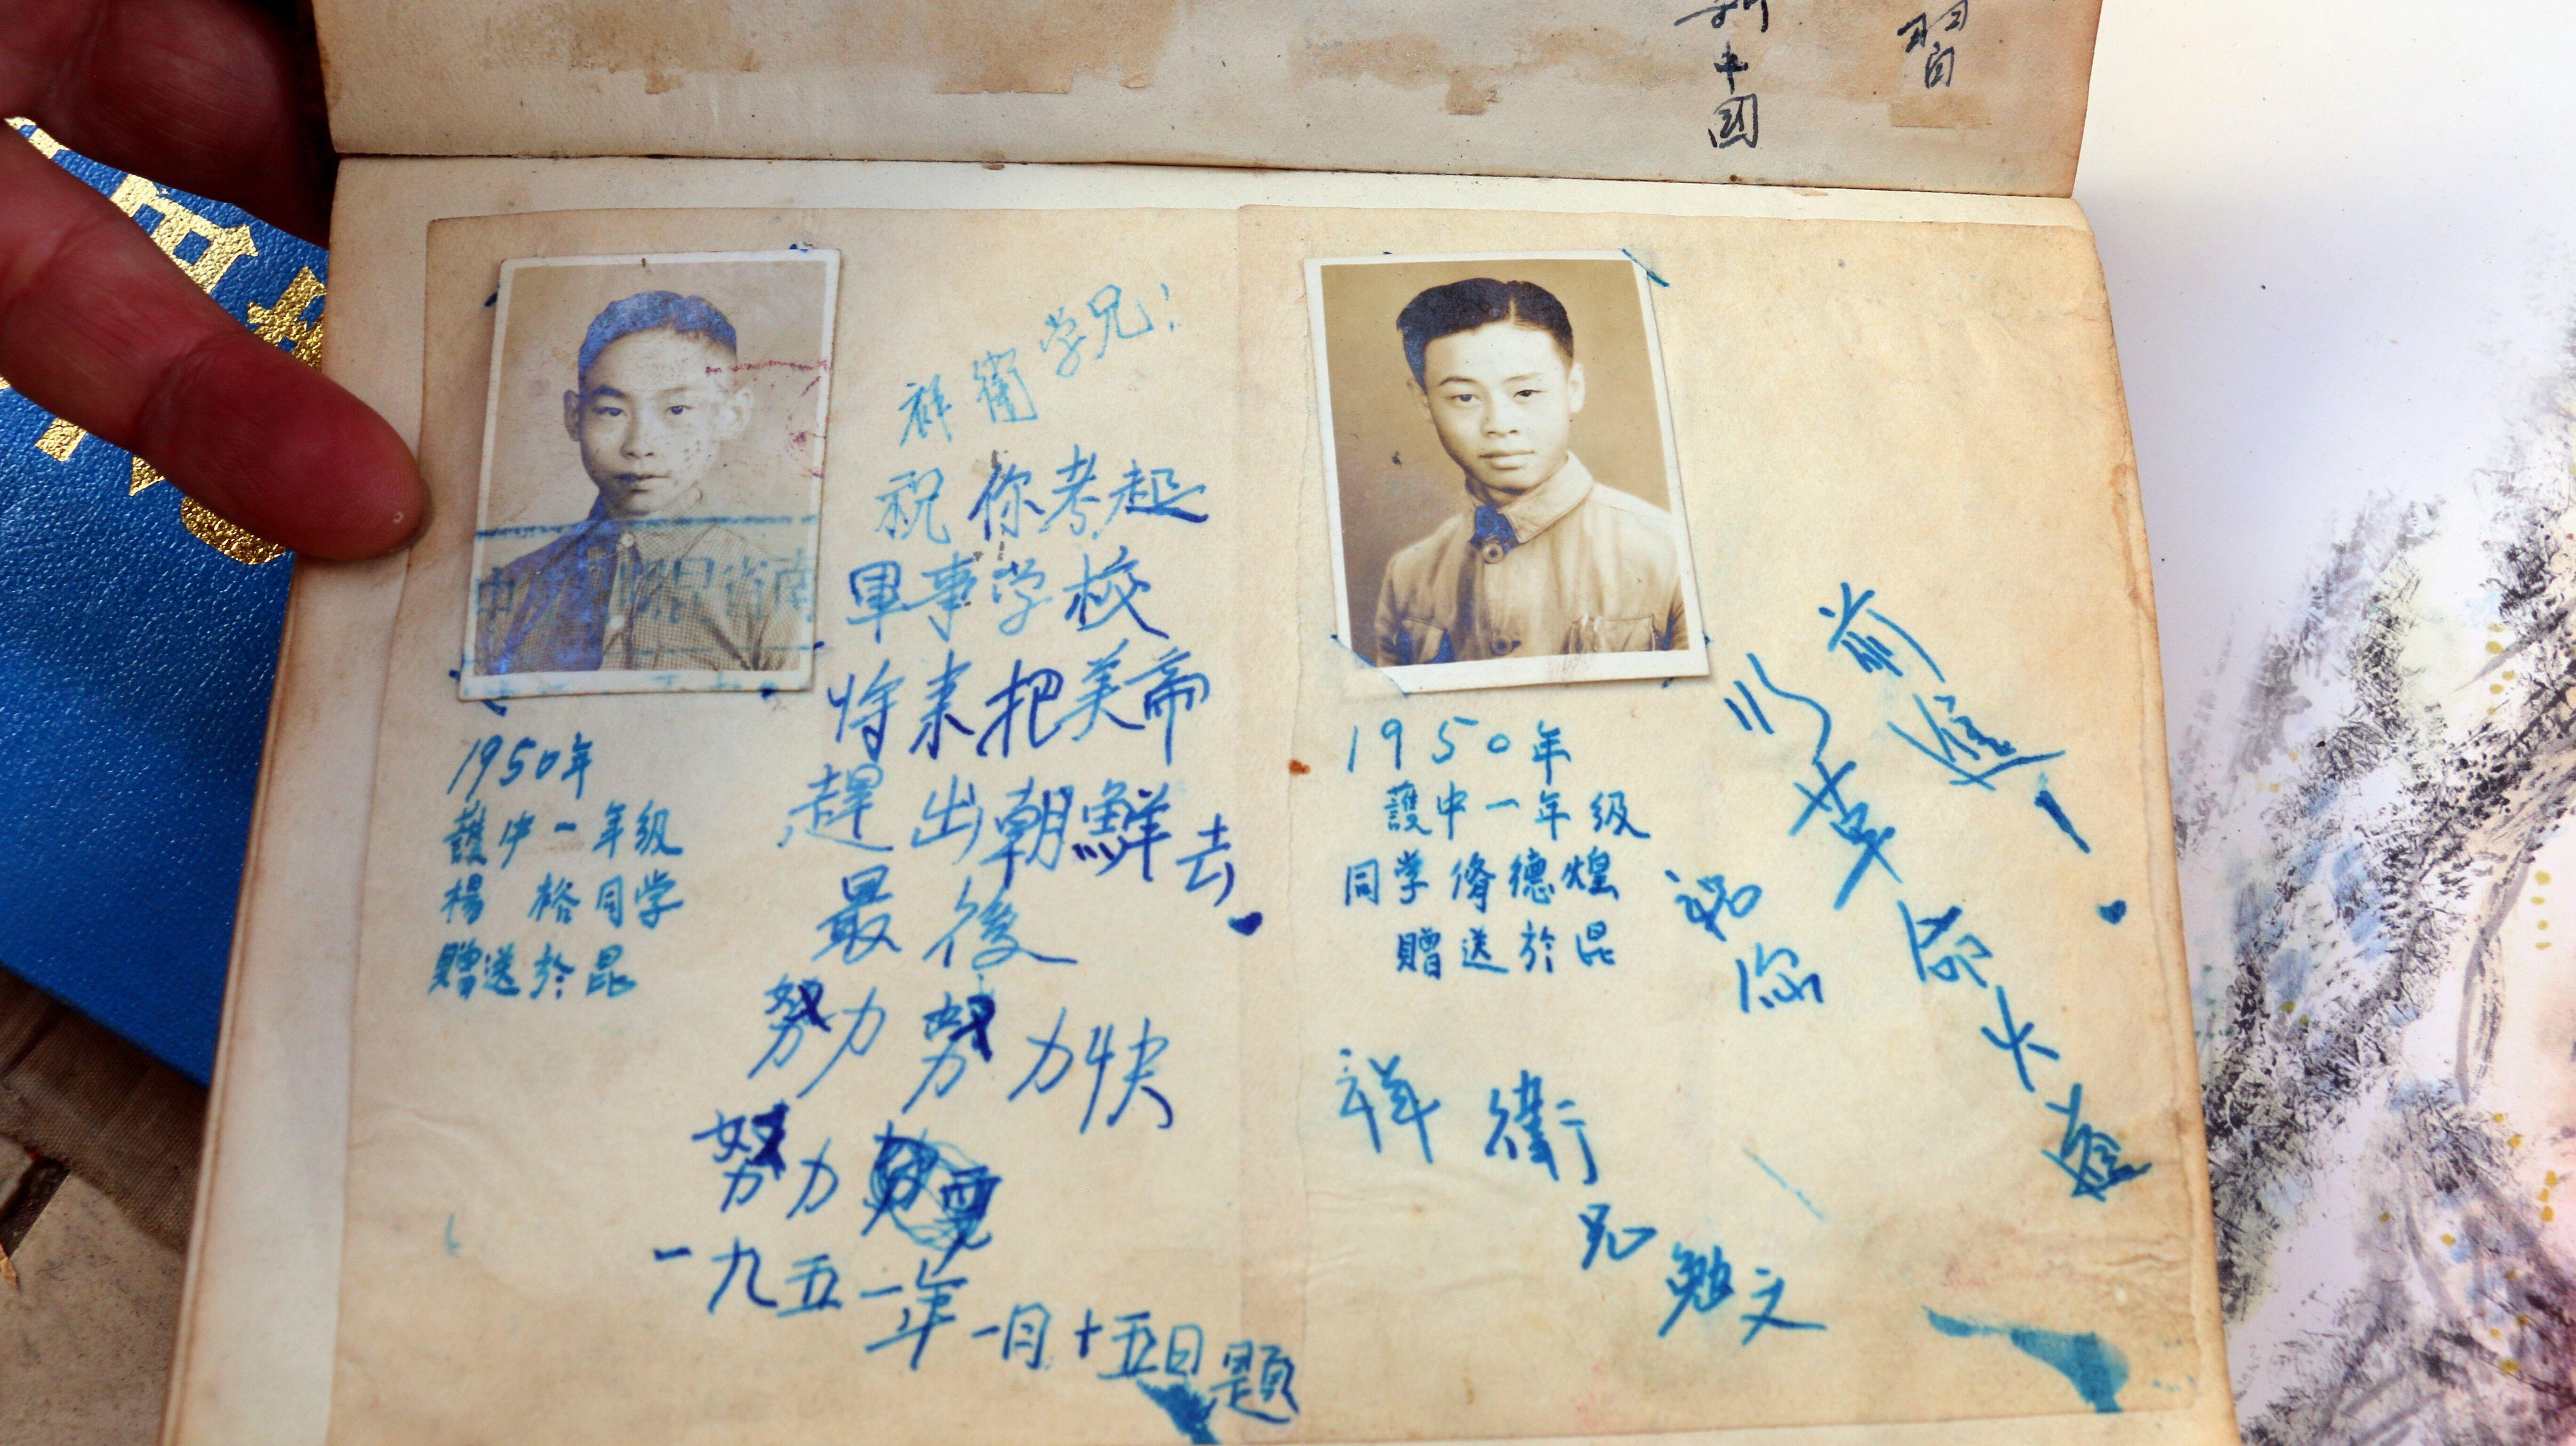 新中國
習
祥衛学兄!
祝你考起
軍事学校
將來把美帝
趕出朝鮮去
最後
努力努力快
努力
一九五一年一月十五日題
1950年
護中一年级
楊 裕同学
贈送於昆
1950年
護中一年级
同学脩德煌
贈送於昆
祥衛
兄勉之
祝你
以革命火
前進!